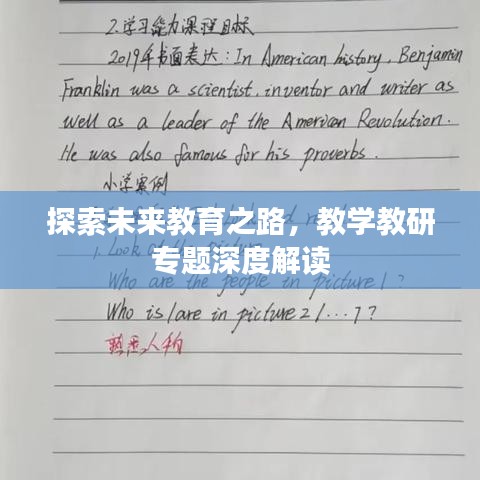 2.学习能力课程目标
2019年书面表达：In American history, Benjamin
Franklin was a scientist, inventor and writer as
well as a leader of the American Revolution.
He was also famous for his proverbs.
小学案例
探索未来教育之路，教学教研
专题深度解读
1. Look at the picture
Who are the people in picture 1?
Who is/are in picture 2/...7?
熟悉人物